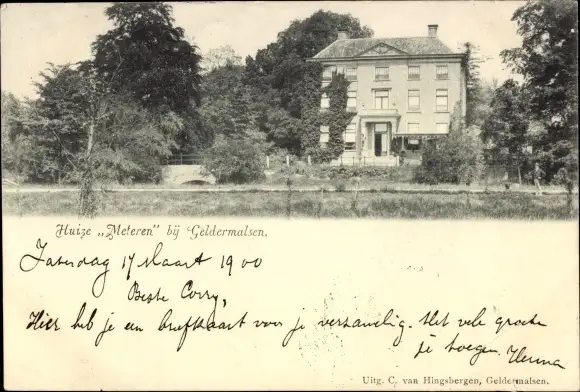 Huize „Meteren” bij Geldermalsen.
Zaterdag 17 Maart 1900
Beste Corry,
Hier heb je een briefkaart voor je verzameling. Met vele groeten
je Herma
Uitg. C. van Hingsbergen, Geldermalsen.